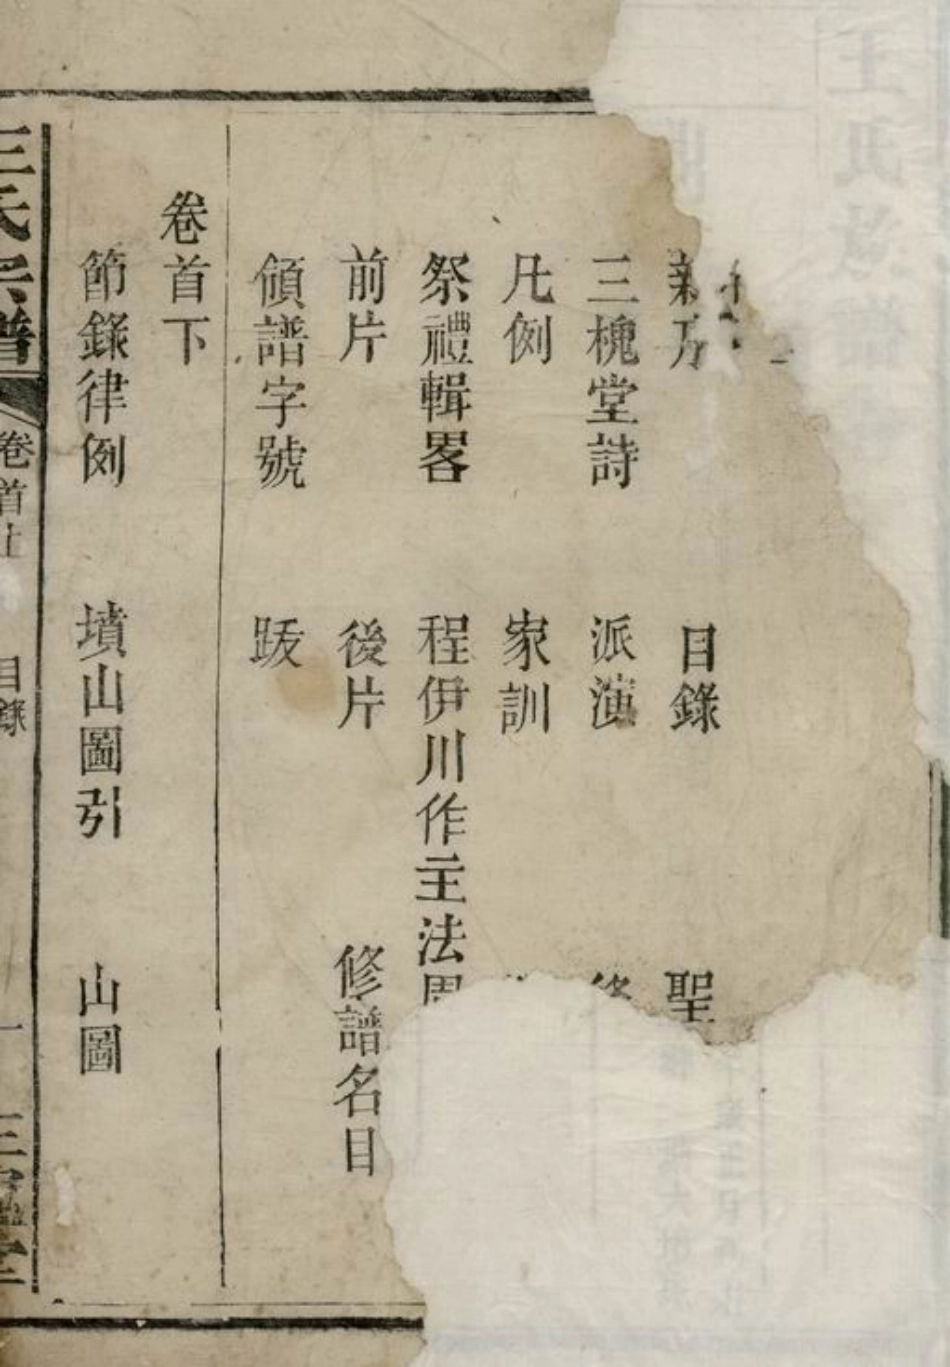 目錄 聖
三槐堂詩 派演
凡例 家訓
祭禮輯畧 程伊川作主法
前片 後片 修譜名目
領譜字號 跋
卷首下
節錄律例 墳山圖引 山圖
王氏宗譜 卷首上 目錄 一 三槐堂